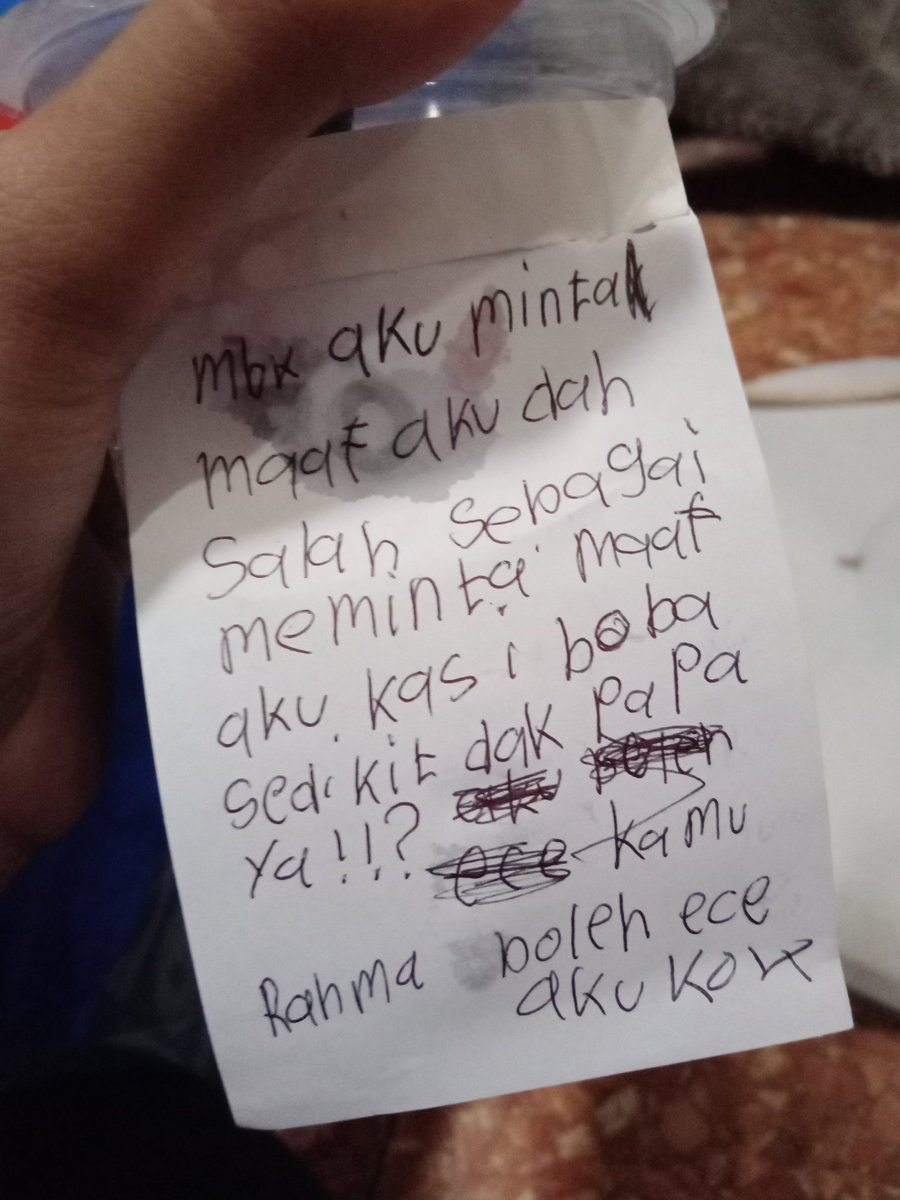 mbx aku mintak
maaf aku dah
Salah sebagai
meminta maaf
aku kasi boba
sedikit dak papa
Ya!!? ece kamu
Rahma boleh ece
aku kox